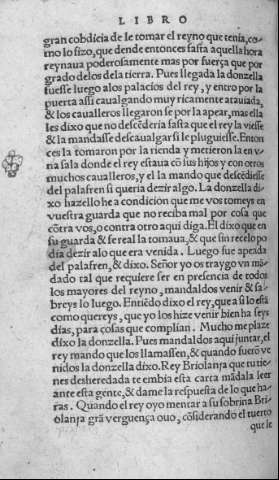 LIBRO
gran cobdicia de le tomar el reyno que tenia, co-
mo lo fizo, que dende entonces fasta aquella hora
reynaua poderosamente mas por fuerça que por
grado delos dela tierra. Pues llegada la donzella
fuesse luego alos palacios del rey, y entro por la
puerta assi caualgando muy ricamente atauiada,
& los caualleros llegaron se por la apear, mas ella
les dixo que no descēderia fasta que el rey la viesse
& la mandasse descaualgar si le pluguiesse. Enton
ces la tomaron por la rienda y metieron la en v-
na sala donde el rey estaua cō sus hijos y con otros
muchos caualleros, y el la mando que descēdiesse
del palafren si queria dezir algo. La donzella di-
xo hazello he a condicion que me vos tomeys en
vuestra guarda que no reciba mal por cosa que
cōtra vos, o contra otro aqui diga. El dixo que en
su guarda & fe real la tomaua, & que sin recelo po
dia dezir alo que era venida. Luego fue apeada
del palafren, & dixo. Señor yo os traygo vn mā-
dado tal que requiere ser en presencia de todos
los mayores del reyno, mandaldos venir & sa-
breys lo luego. Entiēdo dixo el rey, que assi lo està
como quereys, que yo los hize venir bien ha seys
dias, para cosas que complian. Mucho me plaze
dixo la donzella. Pues mandaldos aqui juntar, el
rey mando que los llamassen, & quando fuerō ve
nidos la donzella dixo. Rey Briolanja que tu tie-
nes desheredada te embia esta carta māda la leer
ante esta gente, & dame la respuesta de lo que ha-
ras. Quando el rey oyo mentar a su sobrina Bri-
olanja grā verguença ouo, cōsiderando el tuerto
que le